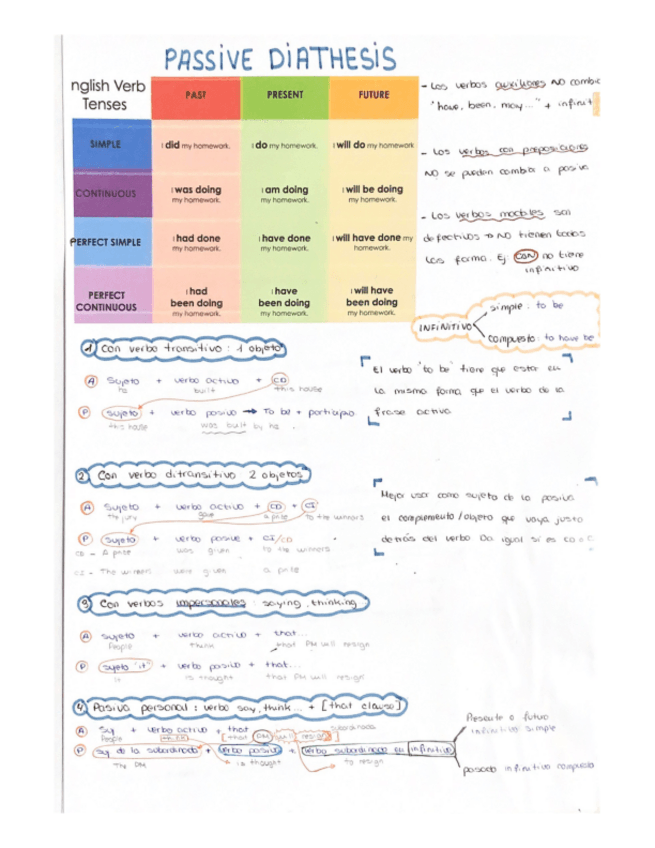 PASSIVE DIATHESIS
nglish Verb Tenses
PAST PRESENT FUTURE
SIMPLE
I did my homework. I do my homework. I will do my homework
CONTINUOUS
I was doing my homework. I am doing my homework. I will be doing my homework.
PERFECT SIMPLE
I had done my homework. I have done my homework. I will have done my homework.
PERFECT CONTINUOUS
I had been doing my homework. I have been doing my homework. I will have been doing my homework.
- Los verbos auxiliares NO cambia
"have, been, may..." + infinit
- Los verbos con preposiciones
NO se pueden cambia a pasiva
- Los verbos modales son
defectivos → NO tienen todas
las forma. Ej CAN no tiene
infinitivo
INFINITIVO
simple: to be
compuesto: to have be
1 Con verbo transitivo: 1 objeto
A Sujeto + verbo activo + CD
ha built this house
P sujeto + verbo pasivo → To be + participio
this house was built by ha
El verbo "to be" tiene que estar en
la misma forma que el verbo de la
frase activa
2 Con verbo ditransitivo 2 objetos
A Sujeto + verbo activo + CD + CI
the jury gave a prize to the winners
P Sujeto + verbo pasivo + CI/CD
CD - A prize was given to the winners
CI - The winners were given a prize
Mejor usar como sujeto de la pasiva
el complemento/objeto que vaya justo
detrás del verbo Da igual si es CD o C
3 Con verbos impersonales: saying, thinking
A Sujeto + verbo activo + that...
People think that PM will resign
P sujeto "it" + verbo pasivo + that...
it is thought that PM will resign
4 Pasiva personal: verbo say, think... + [that clause]
A Suj + verbo activo + that subordinada
People think [that PM will resign]
P Suj de la subordinada + verbo pasivo + verbo subordinada en infinitivo
The PM is thought to resign
Presente o futuro
infinitivo simple
pasado infinitivo compuesto